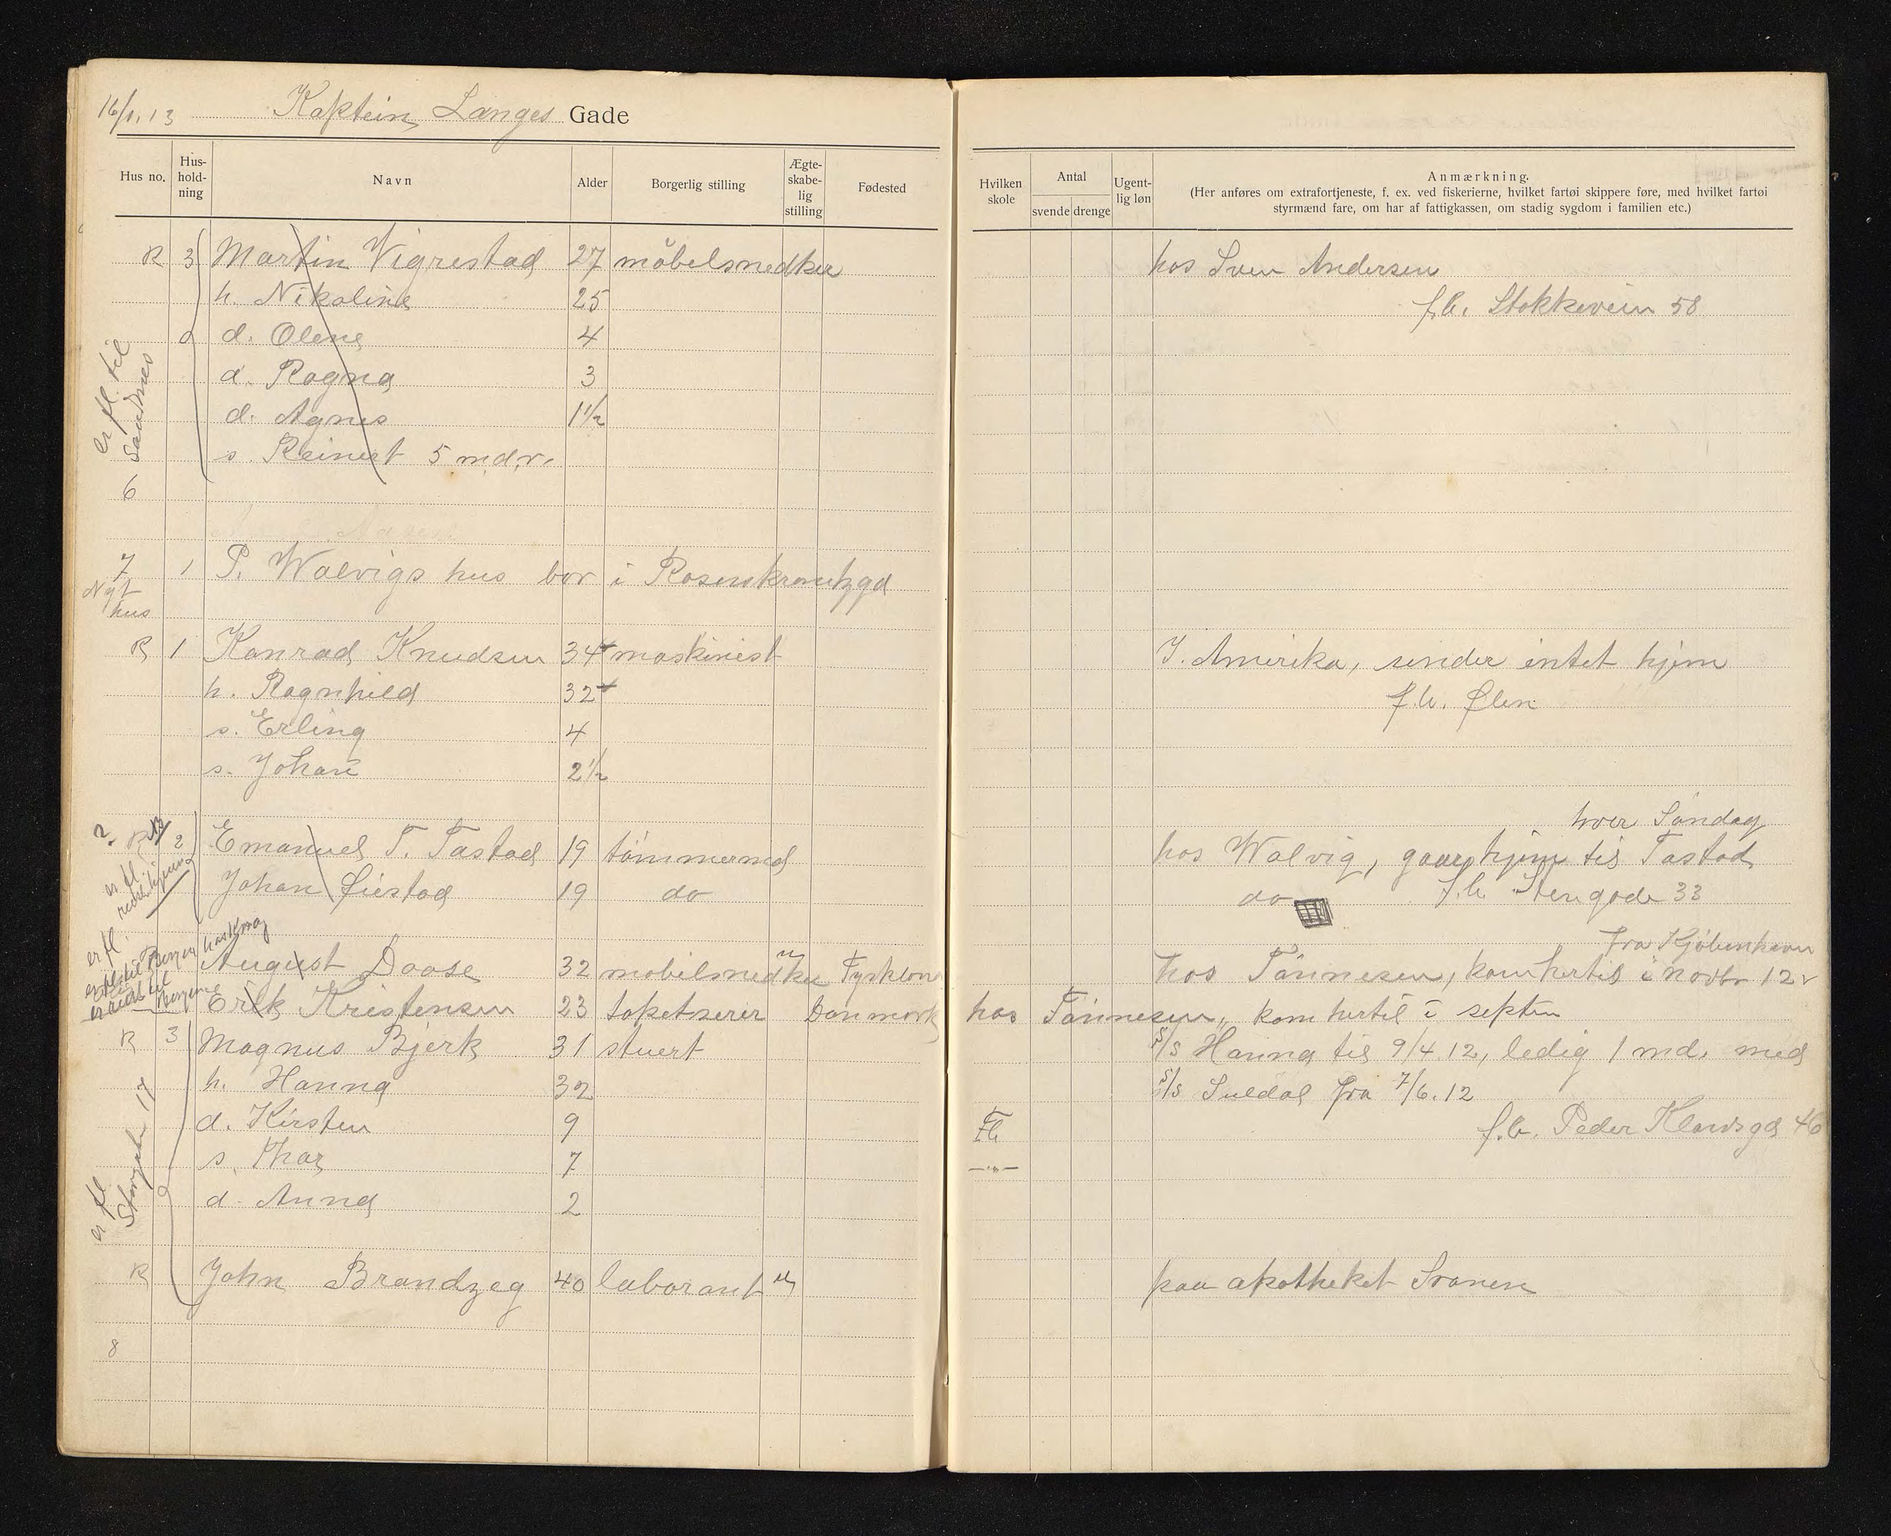 16/1. 13 Kaptein Langes Gade
Hus no. Hus-hold-ning Navn Alder Borgerlig stilling Ægte-skabe-lig stilling Fødested Hvilken skole Antal svende drenge Ugent-lig løn Anmærkning.
(Her anføres om extrafortjeneste, f. ex. ved fiskerierne, hvilket fartøi skippere føre, med hvilket fartøi
styrmænd fare, om har af fattigkassen, om stadig sygdom i familien etc.)
R 3 Martin Vigrestad 27 møbelsnedker hos Sven Andersen
h. Nikoline 25 f.b. Stokkevein 58
d. Olene 4
d. Ragna 3
d. Agnes 1½
s. Reinert 5 mdr.
er fl til
Sandnes
6
7 1 P. Walvigs hus bor i Rosenkrantzgd
Nyt
hus
R 1 Konrad Knudsen 34 maskinist I. Amerika, sender intet hjem
h. Ragnhild 32 f.b. Ølen
s. Erling 4
s. Johan 2½
hver Søndag
R 2 Emanuel T. Tastad 19 tømmermd hos Walvig, gaar hjem til Tastad
Johan Øiestad 19 do do f.b. Stengade 33
er fl.
fra Kjøbenhavn
August Daase 32 møbelsnedker u Tyskland hos Tønnesen, kom hertil i novbr 12
Erik Kristensen 23 tapetserer Danmark hos Tønnesen, kom hertil i septem
R 3 Magnus Bjerk 31 stuert S/S Hanna til 9/4.12, ledig 1 md. med
h. Hanna 32 S/S Suldal fra 7/6.12
d. Kirsten 9 Fb f.b. Peder Klowsgd 46
s. Thor 7 —"—
d. Anna 2
er fl.
Storgaten 17
R John Brandzeg 40 laborant u paa apotheket Svanen
8